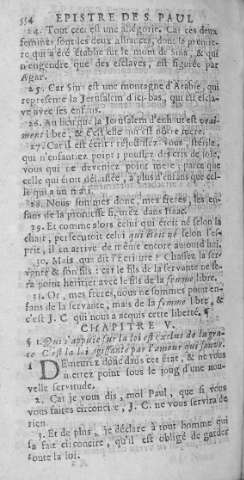 354 EPISTRE DE S. PAUL
24. Tout ceci est une allégorie. Car ces deux
femmes sont les deux alliances, dont la premiere,
qui a été établie sur le mont de Sina, & qui
n'engendre que des esclaves, est figurée par
Agar.
25. Car Sina est une montagne d'Arabie, qui
represente la Jerusalem d'ici-bas, qui est esclave
avec ses enfans.
26. Au lieu que la Jerusalem d'enhaut est vrai-
ment libre, & c'est elle qui est nôtre mere.
27. Car il est écrit : réjouïssez-vous, sterile,
qui n'enfantiez point ; poussez des cris de joïe,
vous qui ne deveniez point mere ; parce que
celle qui étoit délaissée, a plus d'enfans, que celle
qui a un mari.
28. Nous sommes donc, mes freres, les en-
fans de la promesse figurez dans Isaac.
29. Et comme alors celui qui étoit né selon la
chair, persecutoit celui qui étoit né selon l'es-
prit, il en arrive de même encore aujourd'hui.
30. Mais que dit l'Ecriture ? Chassez la ser-
vante & son fils : car le fils de la servante ne se-
ra point heritier avec le fils de la femme libre.
31. Or, mes freres, nous ne sommes point en-
fans de la servante, mais de la femme libre, &
c'est J. C. qui nous a acquis cette liberté. ¶
CHAPITRE V.
§ 1. Qui s'appuie sur la loi est exclus de la gra-
ce. C'est la foi agissante par l'amour qui sauve.
1 DEmeurez donc dans cet état, & ne vous
mettez point sous le joug d'une nou-
velle servitude.
2. Car je vous dis, moi Paul, que si vous
vous faites circoncire, J. C. ne vous servira de
rien
3. Et de plus, je déclare à tout homme qui
se fait circoncire, qu'il est obligé de garder
toute la loi.